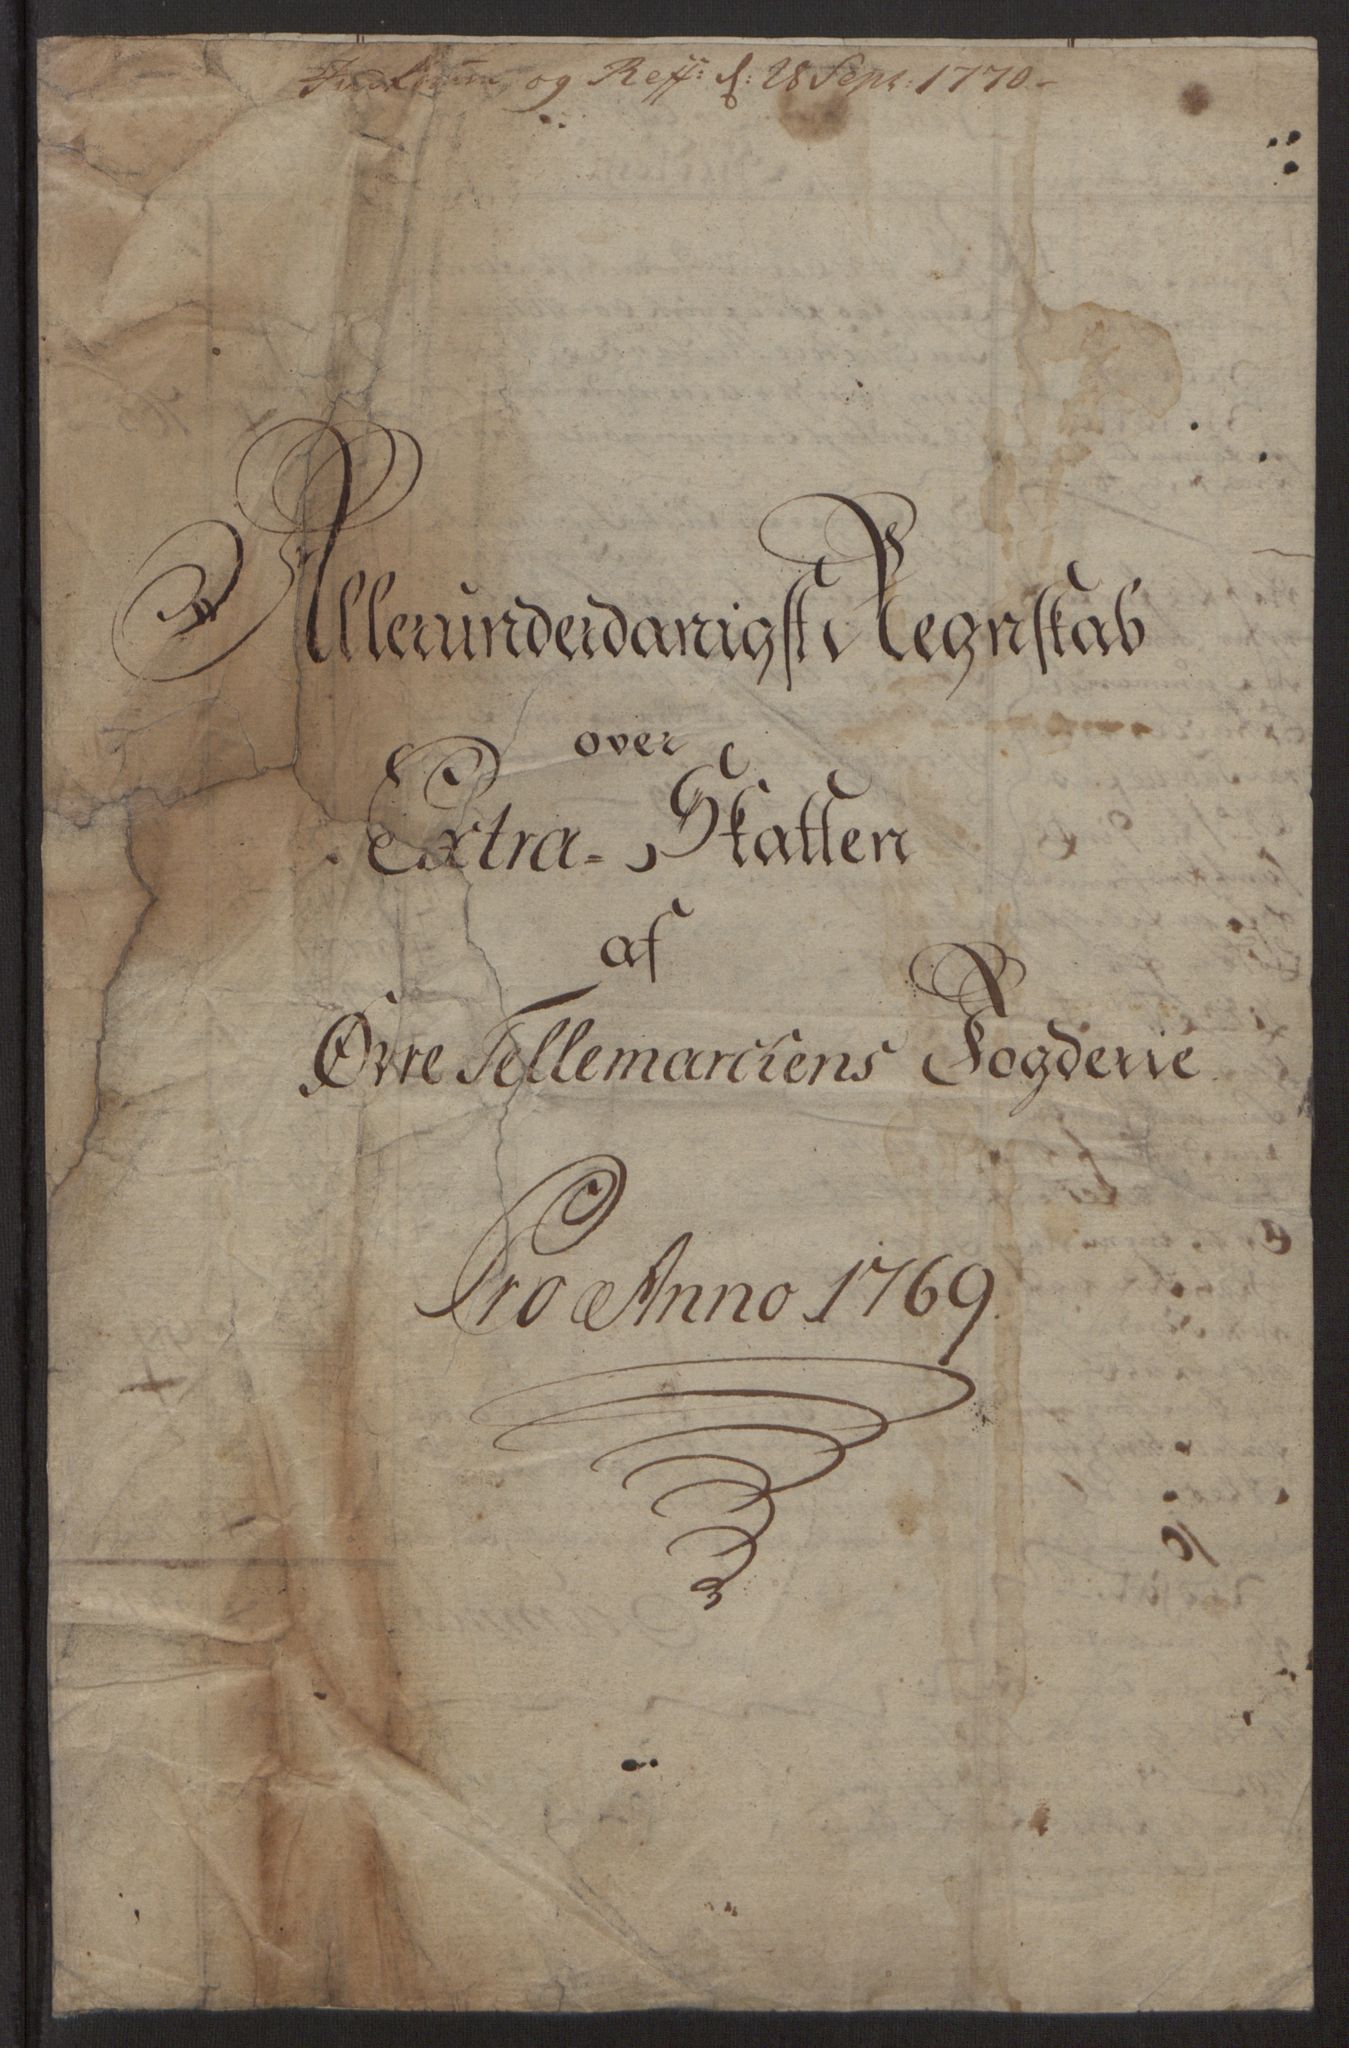 og Reff: d: 28 Sept: 1770.
Allerunderdanigst Regnskab
over
Extra-Skatten
af
Øvre Tellemarckens Fogderie
Pro Anno 1769.